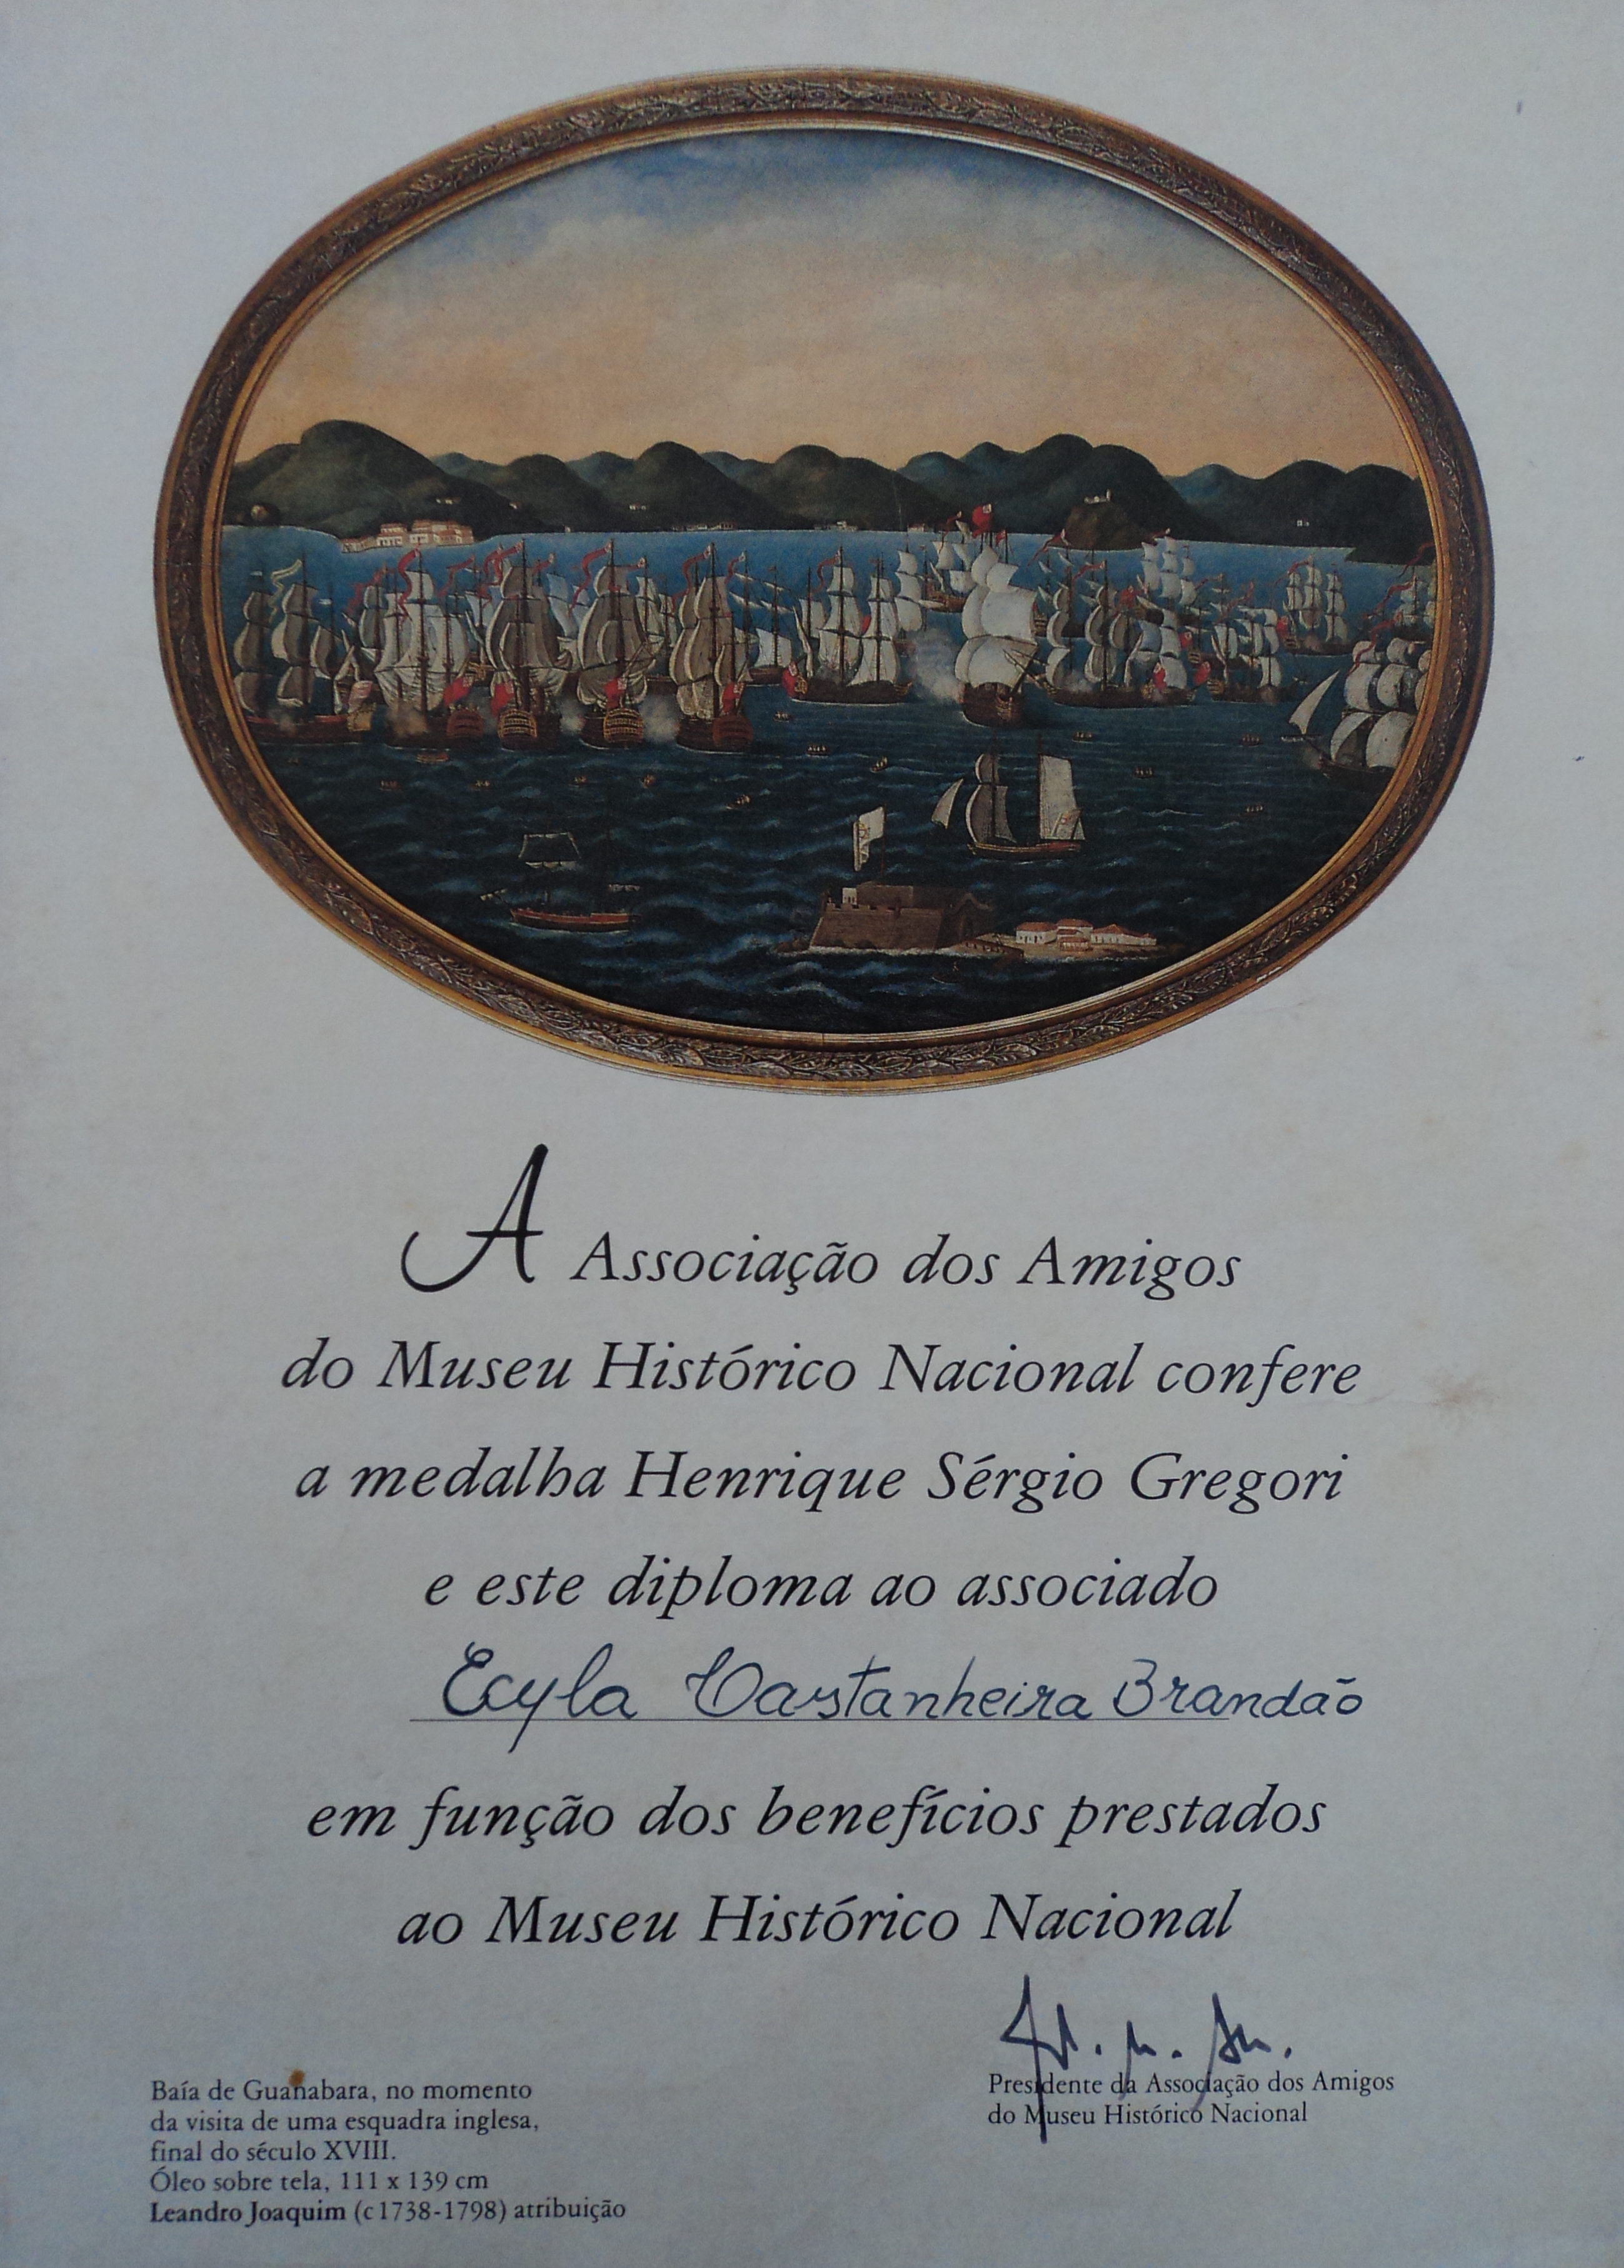 A Associação dos Amigos
do Museu Histórico Nacional confere
a medalha Henrique Sérgio Gregori
e este diploma ao associado
Ecyla Castanheira Brandão
em função dos benefícios prestados
ao Museu Histórico Nacional
Presidente da Associação dos Amigos
do Museu Histórico Nacional
Baía de Guanabara, no momento
da visita de uma esquadra inglesa,
final do século XVIII.
Óleo sobre tela, 111 x 139 cm
Leandro Joaquim (c 1738-1798) atribuição